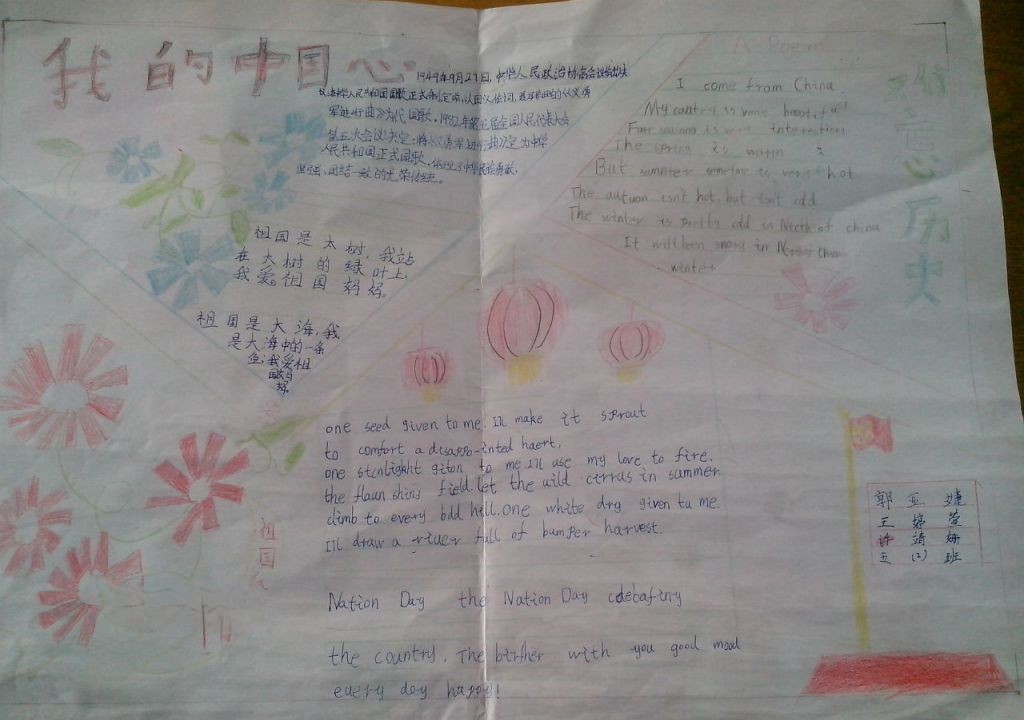 我的中国心
1949年9月27日,中华人民政治协商会议
人民共和国国歌正式制定前,以田汉作词,聂耳作曲的《义勇
军进行曲》为代国歌。1982年第五届全国人民代表大会
第五次会议决定:将《义勇军进行曲》定为中华
人民共和国正式国歌,中华民族勇敢,
坚强,团结一致的光荣传统。
祖国是大树,我站
在大树的绿叶上.
我爱。祖国妈妈。
祖国是大海,我
是大海中的一条
鱼;我爱祖
国妈
妈。
A Poem
I come from China.
My country is very
Four is very
The spring is warm
But summter is very hot
The autuan isn't hot, but isn't odd
The winter is pretty odd in Nirth of china
It will been snowy in
winter
心历史
one seed given to me. I'll make it sprout
to comfort a disappo-inted haert.
one stcnlight giton to me I'll use my love to fire.
the flaun shins field. let the uild cirrus in summer.
climb to every bdd hill. one white drg given tu me.
I'll draw a riuer full of bumper harvest.
Nation Day the Nation Day cdebafing
the country. The birther with you good mood
euery doy happy!
祖国
郭亚婕
王婷萱
许靖姗
五(2)班